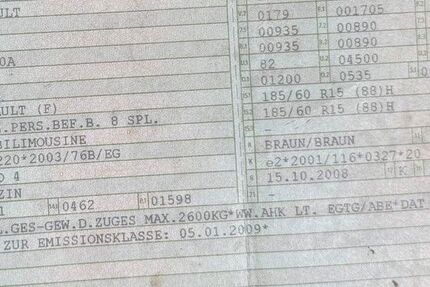 ULT 0179 001705
00935 00890
00935 00890
0A 82 04500
01200 0535
185/60 R15 (88)H
ULT (F) 185/60 R15 (88)H
.PERS.BEF.B. 8 SPL. –
BILIMOUSINE –
220*2003/76B/EG BRAUN/BRAUN
D 4 e2*2001/116*0327*20
ZIN 15.10.2008 K
1 0462 01598 –
.GES-GEW.D.ZUGES MAX.2600KG*WW.AHK LT. EGTG/ABE*DAT
ZUR EMISSIONSKLASSE: 05.01.2009*